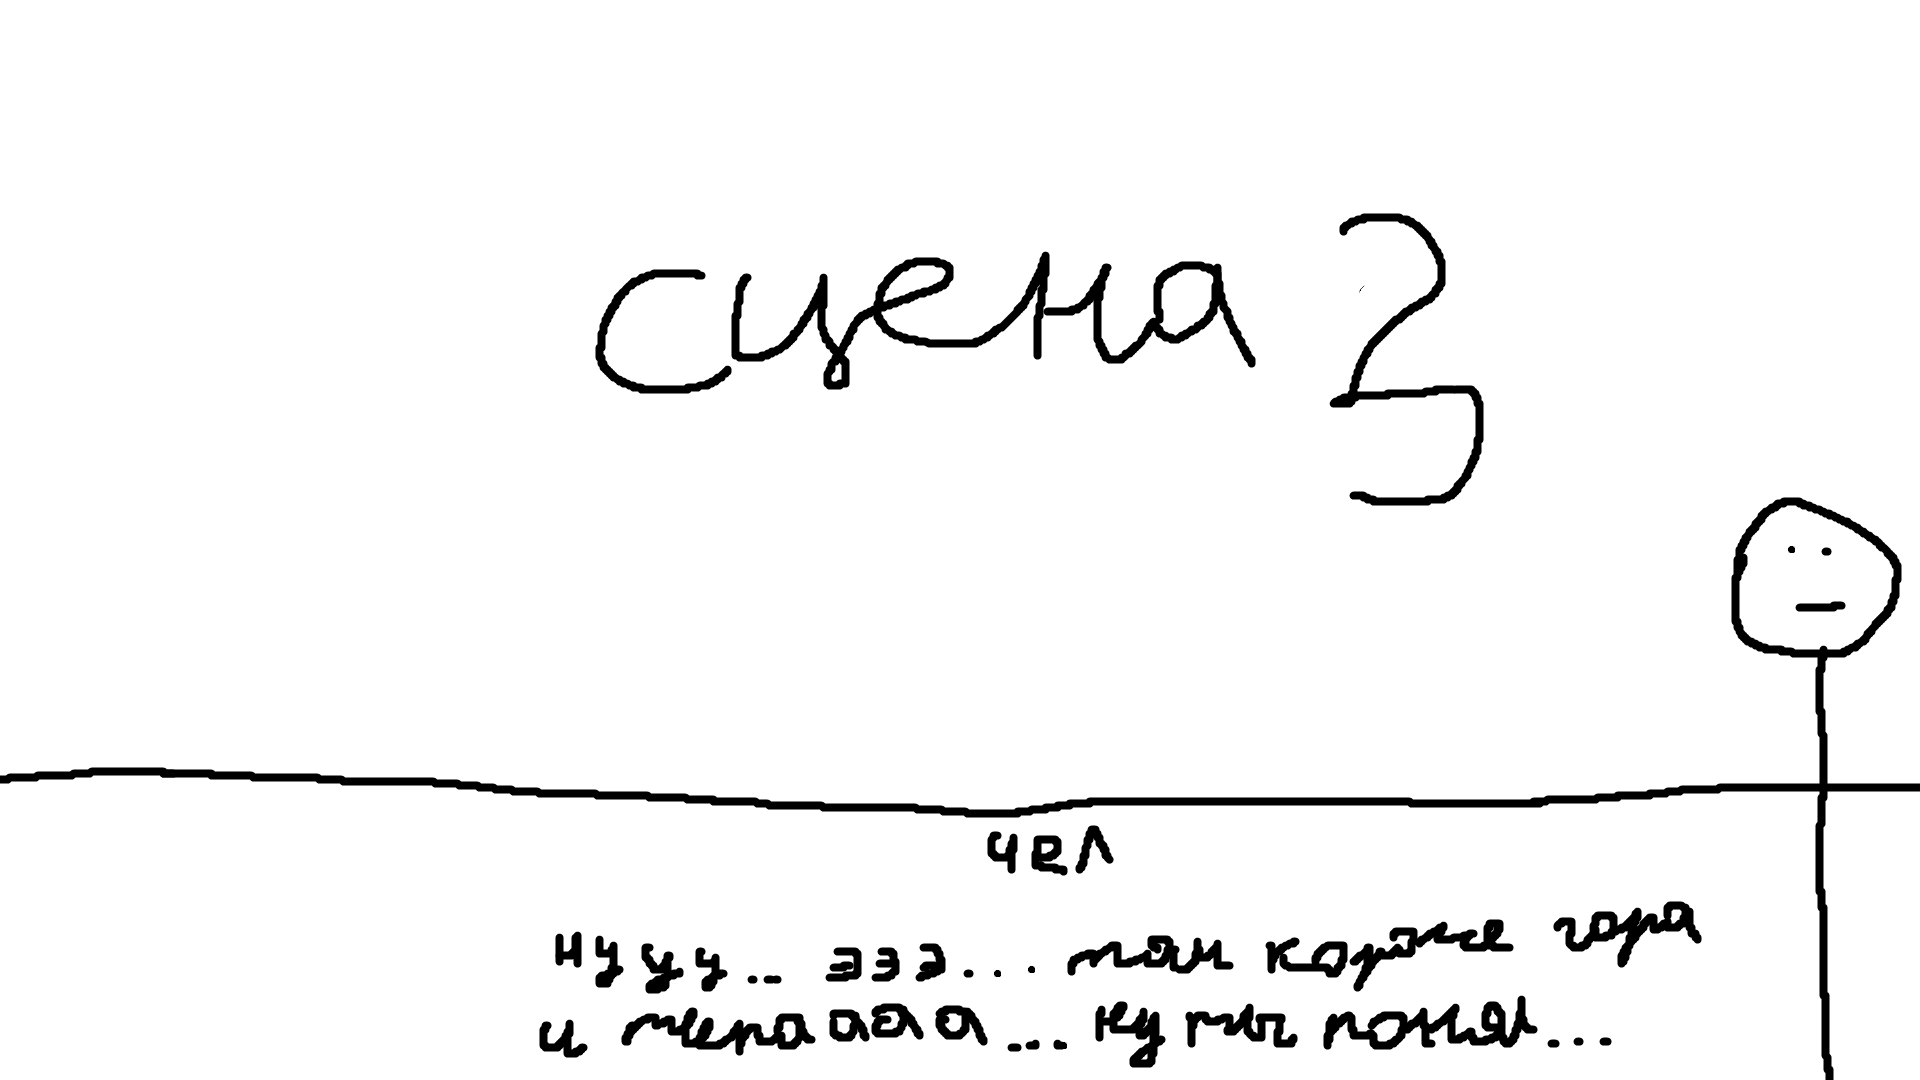 сцена 3
чел
нууу... эээ... там короче гора
и
ааа... ну ты понял...